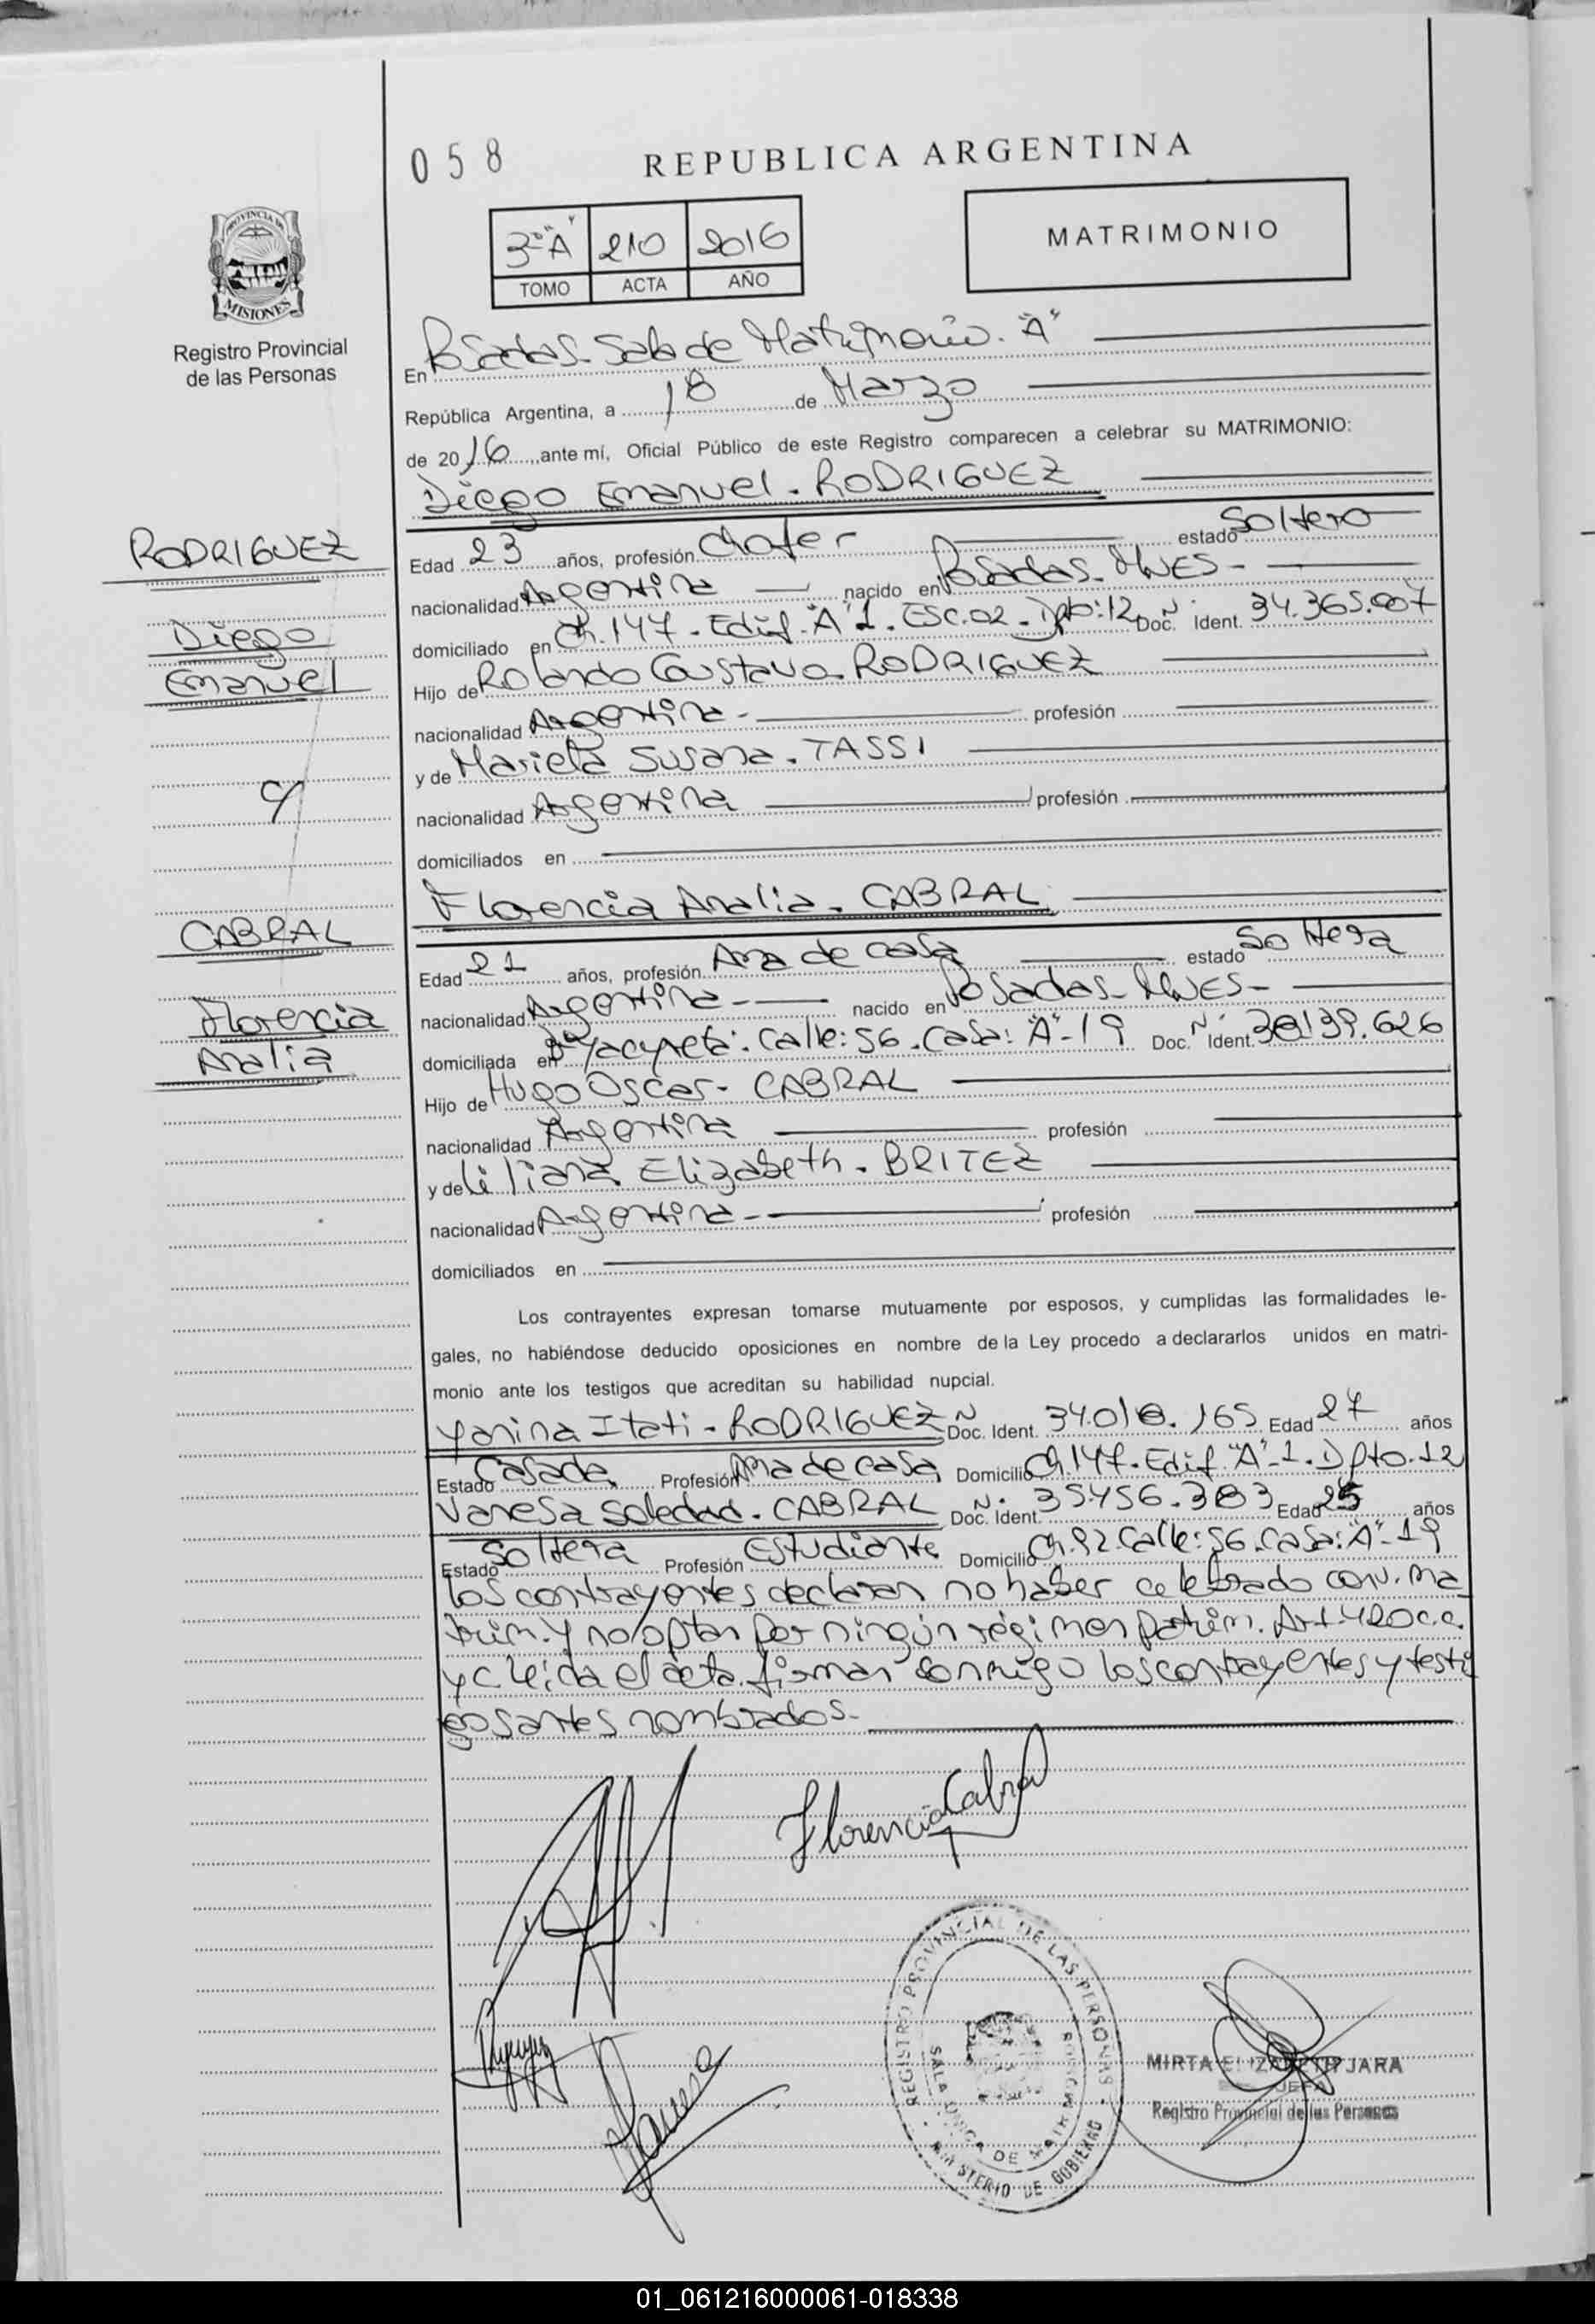 058
REPUBLICA ARGENTINA
PROVINCIA DE
MISIONES
Registro Provincial
de las Personas
3º "A" 210 2016
TOMO ACTA AÑO
MATRIMONIO
En Posadas - Sala de Matrimonio. "A"
República Argentina, a 18 de Marzo
de 2016, ante mí, Oficial Público de este Registro comparecen a celebrar su MATRIMONIO:
Diego Emanuel. RODRIGUEZ
RODRIGUEZ
Diego
Emanuel
c/
CABRAL
Florencia
Analia
Edad 23 años, profesión Chofer estado Soltero
nacionalidad Argentina nacido en Posadas - Mnes -
domiciliado en Ch. 147 - Edif. "A" 1. Esc. 02 - Dpto: 12 Doc. Nº Ident. 34.365.007
Hijo de Rolando Gustavo. RODRIGUEZ
nacionalidad Argentina - profesión
y de Mariela Susana. TASSI
nacionalidad Argentina profesión
domiciliados en
Florencia Analia. CABRAL
Edad 21 años, profesión Ama de casa estado Soltera
nacionalidad Argentina - nacido en Posadas - Mnes -
domiciliada en Bº Yacyreta: Calle: 56. Casa: "A" - 19 Doc. Nº Ident. 38.139.626
Hijo de Hugo Oscar - CABRAL
nacionalidad Argentina profesión
y de Liliana Elizabeth. BRITEZ
nacionalidad Argentina - profesión
domiciliados en
Los contrayentes expresan tomarse mutuamente por esposos, y cumplidas las formalidades le-
gales, no habiéndose deducido oposiciones en nombre de la Ley procedo a declararlos unidos en matri-
monio ante los testigos que acreditan su habilidad nupcial.
Yanina Itati - RODRIGUEZ Nº Doc. Ident. 34.018.165 Edad 27 años
Estado Casada Profesión Ama de casa Domicilio Ch. 147. Edif "A" - 1. Dpto. 12
Vanesa Soledad. CABRAL Nº Doc. Ident. 35.456.383 Edad 25 años
Estado Soltera Profesión Estudiante Domicilio Ch. 92. Calle: 56. Casa: "A" - 19
los contrayentes declaran no haber celebrado conv. ma
trim. y no optan por ningún régimen patrim. Art 420 c.c.
y c leída el acta. firman conmigo los contrayentes y testi
gos antes nombrados.
Florencia Cabral
Vanesa
REGISTRO PROVINCIAL DE LAS PERSONAS
SALA UNICA DE MATRIMONIOS
MINISTERIO DE GOBIERNO
MIRTA ELIZABETH JARA
JEFA
Registro Provincial de las Personas
01_061216000061-018338